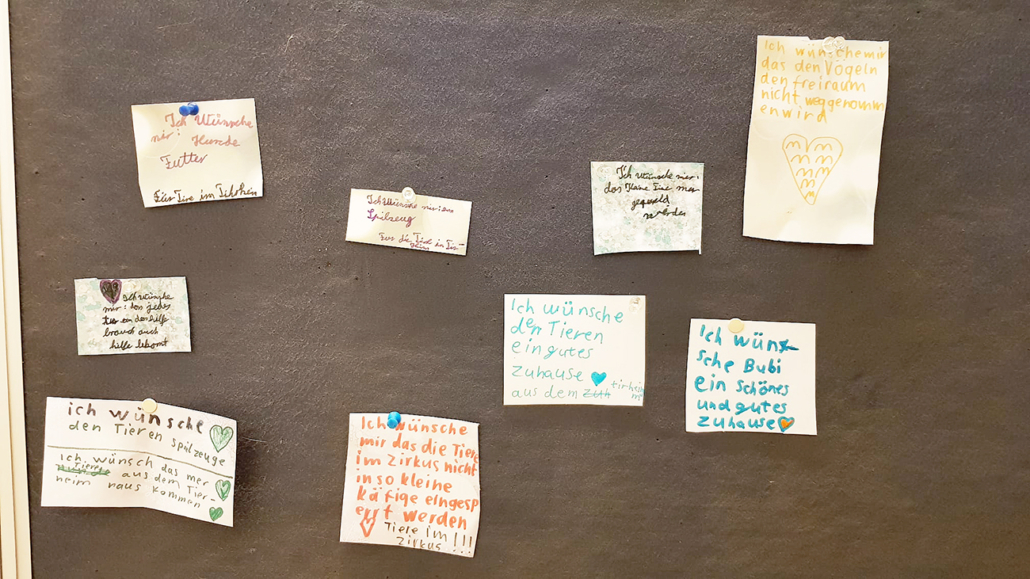 Ich Wünsche
mir: Hunde
Futter
Für Tire im
Ich Wünsche mir: 
Spilzeug
Für die Tire in
Ich wünsche mir:
das kleine Tire
gequeld
werden
Ich wünsche mir
das den Vögeln
den freiraum
nicht weggenomm
en wird
Ich wünsche
mir: das jedes
tier
brauch auch
hilfe bekomt
Ich wünsche
den Tieren
ein gutes
Zuhause
aus dem tirheim
Ich wün
sche Bubi
ein schönes
und gutes
Zuhause
ich wünsche
den Tieren Spilzeuge
ich wünsch das mer
Tiere aus dem Tier-
heim raus kommen
Ich wünsche
mir das die Tiere
im Zirkus nicht
in so kleine
käfige eingesp
errt werden
Tiere im !!!
Zirkus ...